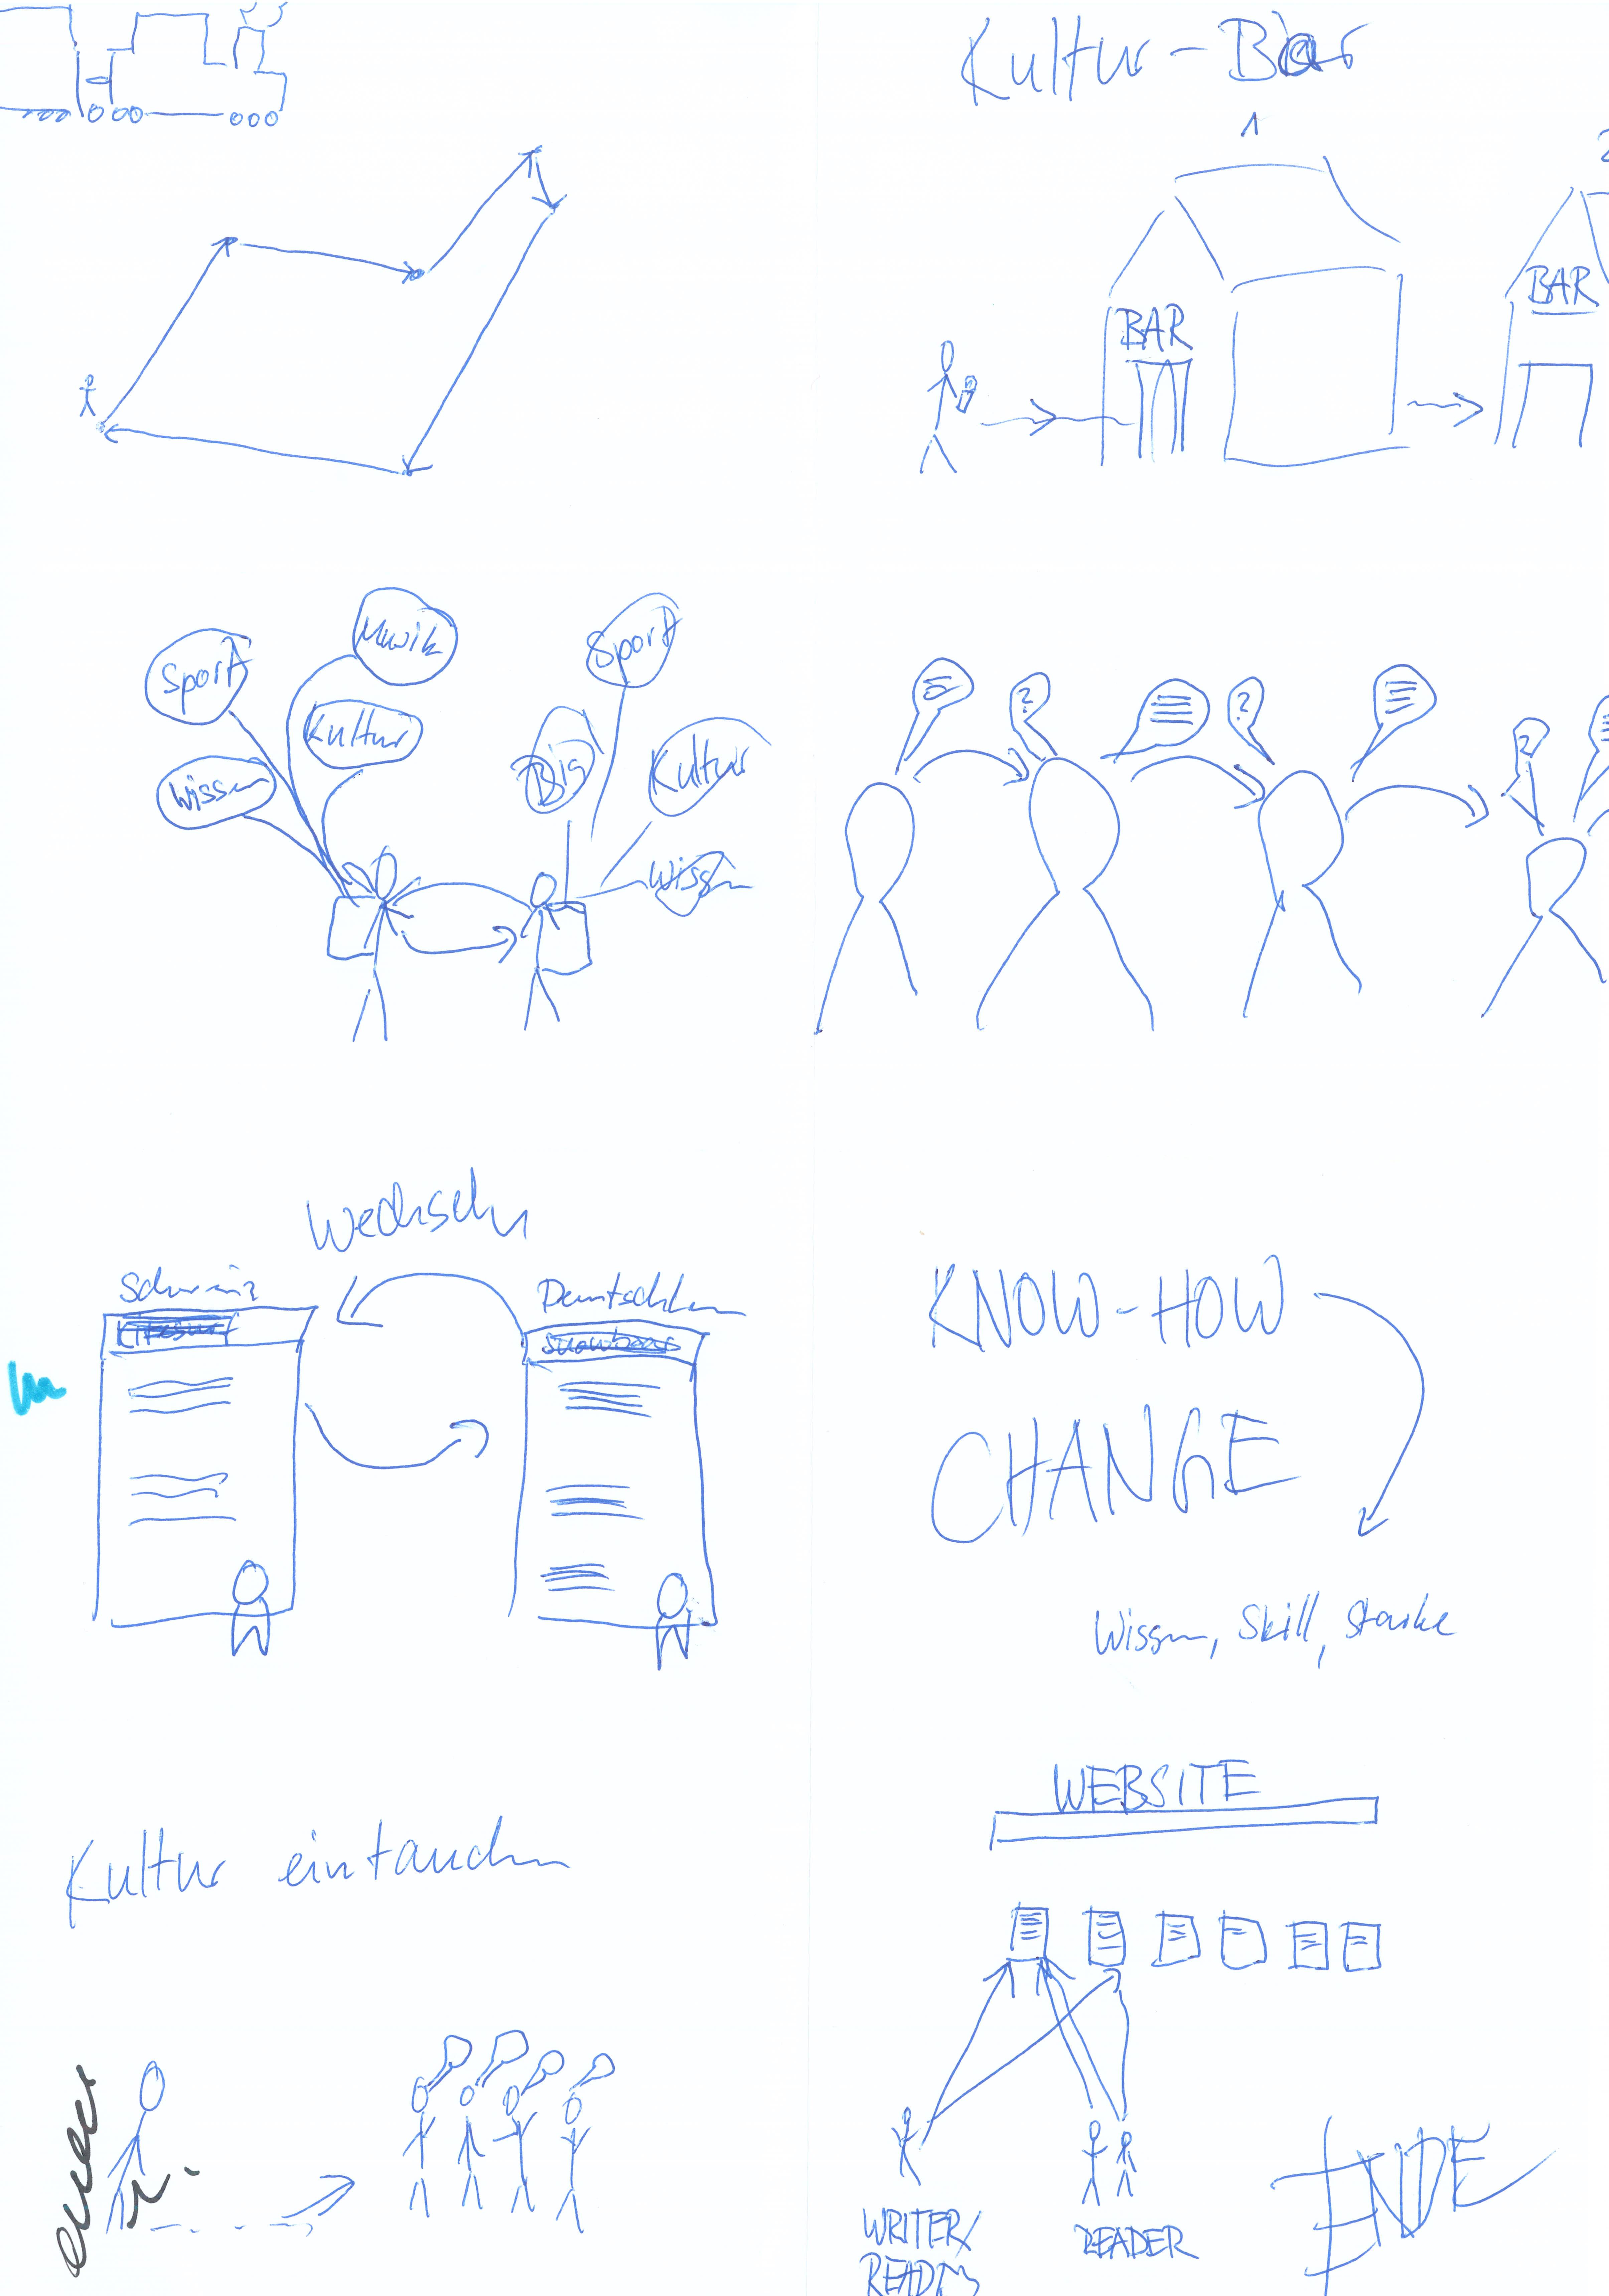 Kultur-Bar
1
2
BAR
BAR
Sport
Musik
Kultur
Wissen
Sport
Big
Kultur
Wissen
?
?
?
Wechseln
Schweiz
Deutschlan
Kitesurf
Snowboard
KNOW-HOW
CHANGE
Wissen, Skill, Starke
Kultur eintauchen
WEBSITE
WRITER/
READER
ENDE